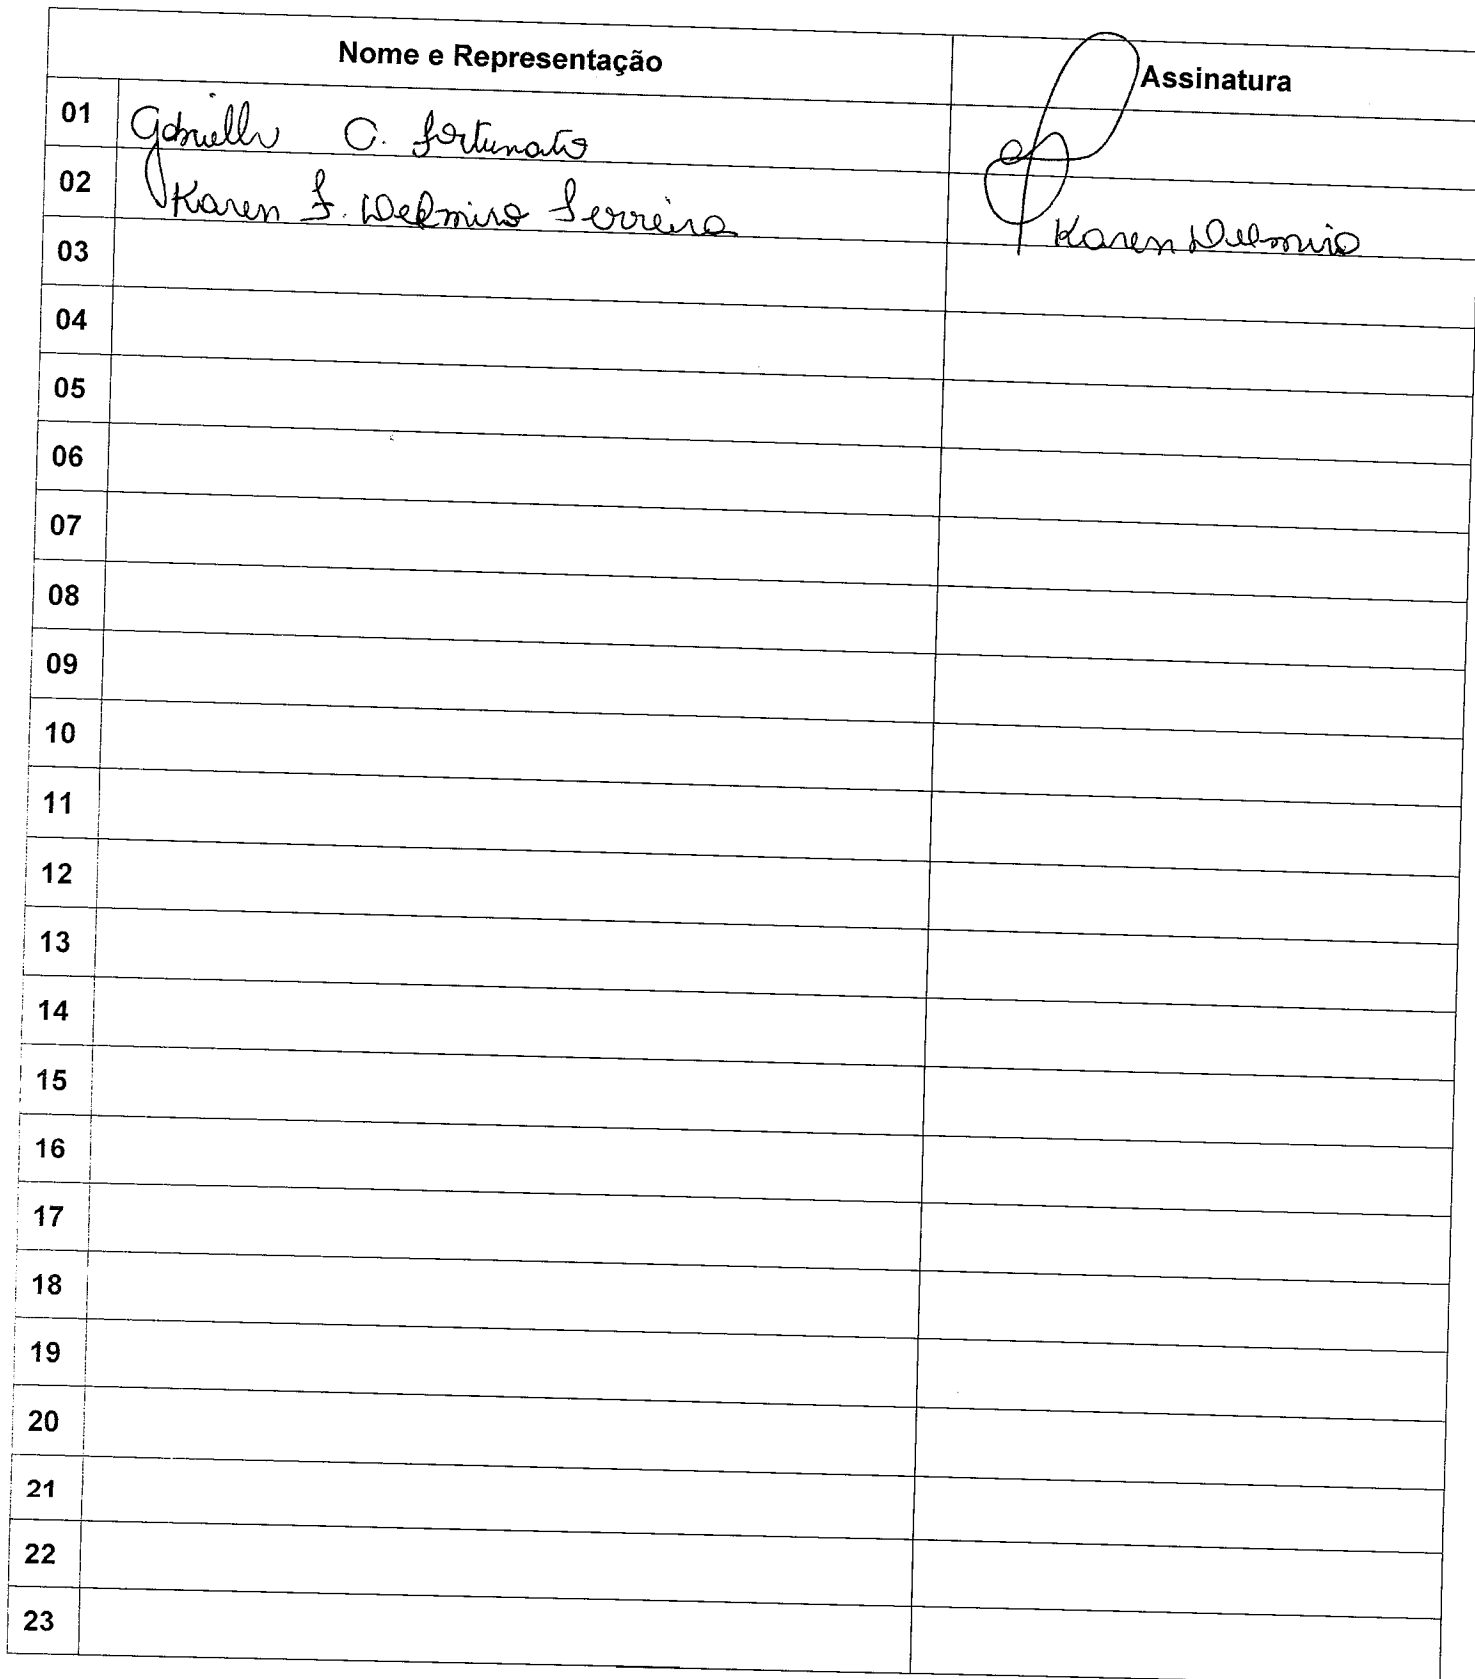 Nome e Representação Assinatura
01 Gabrielly C. Fortunato
02 Karen F. Delmiro Ferreira Karen Delmiro
03
04
05
06
07
08
09
10
11
12
13
14
15
16
17
18
19
20
21
22
23